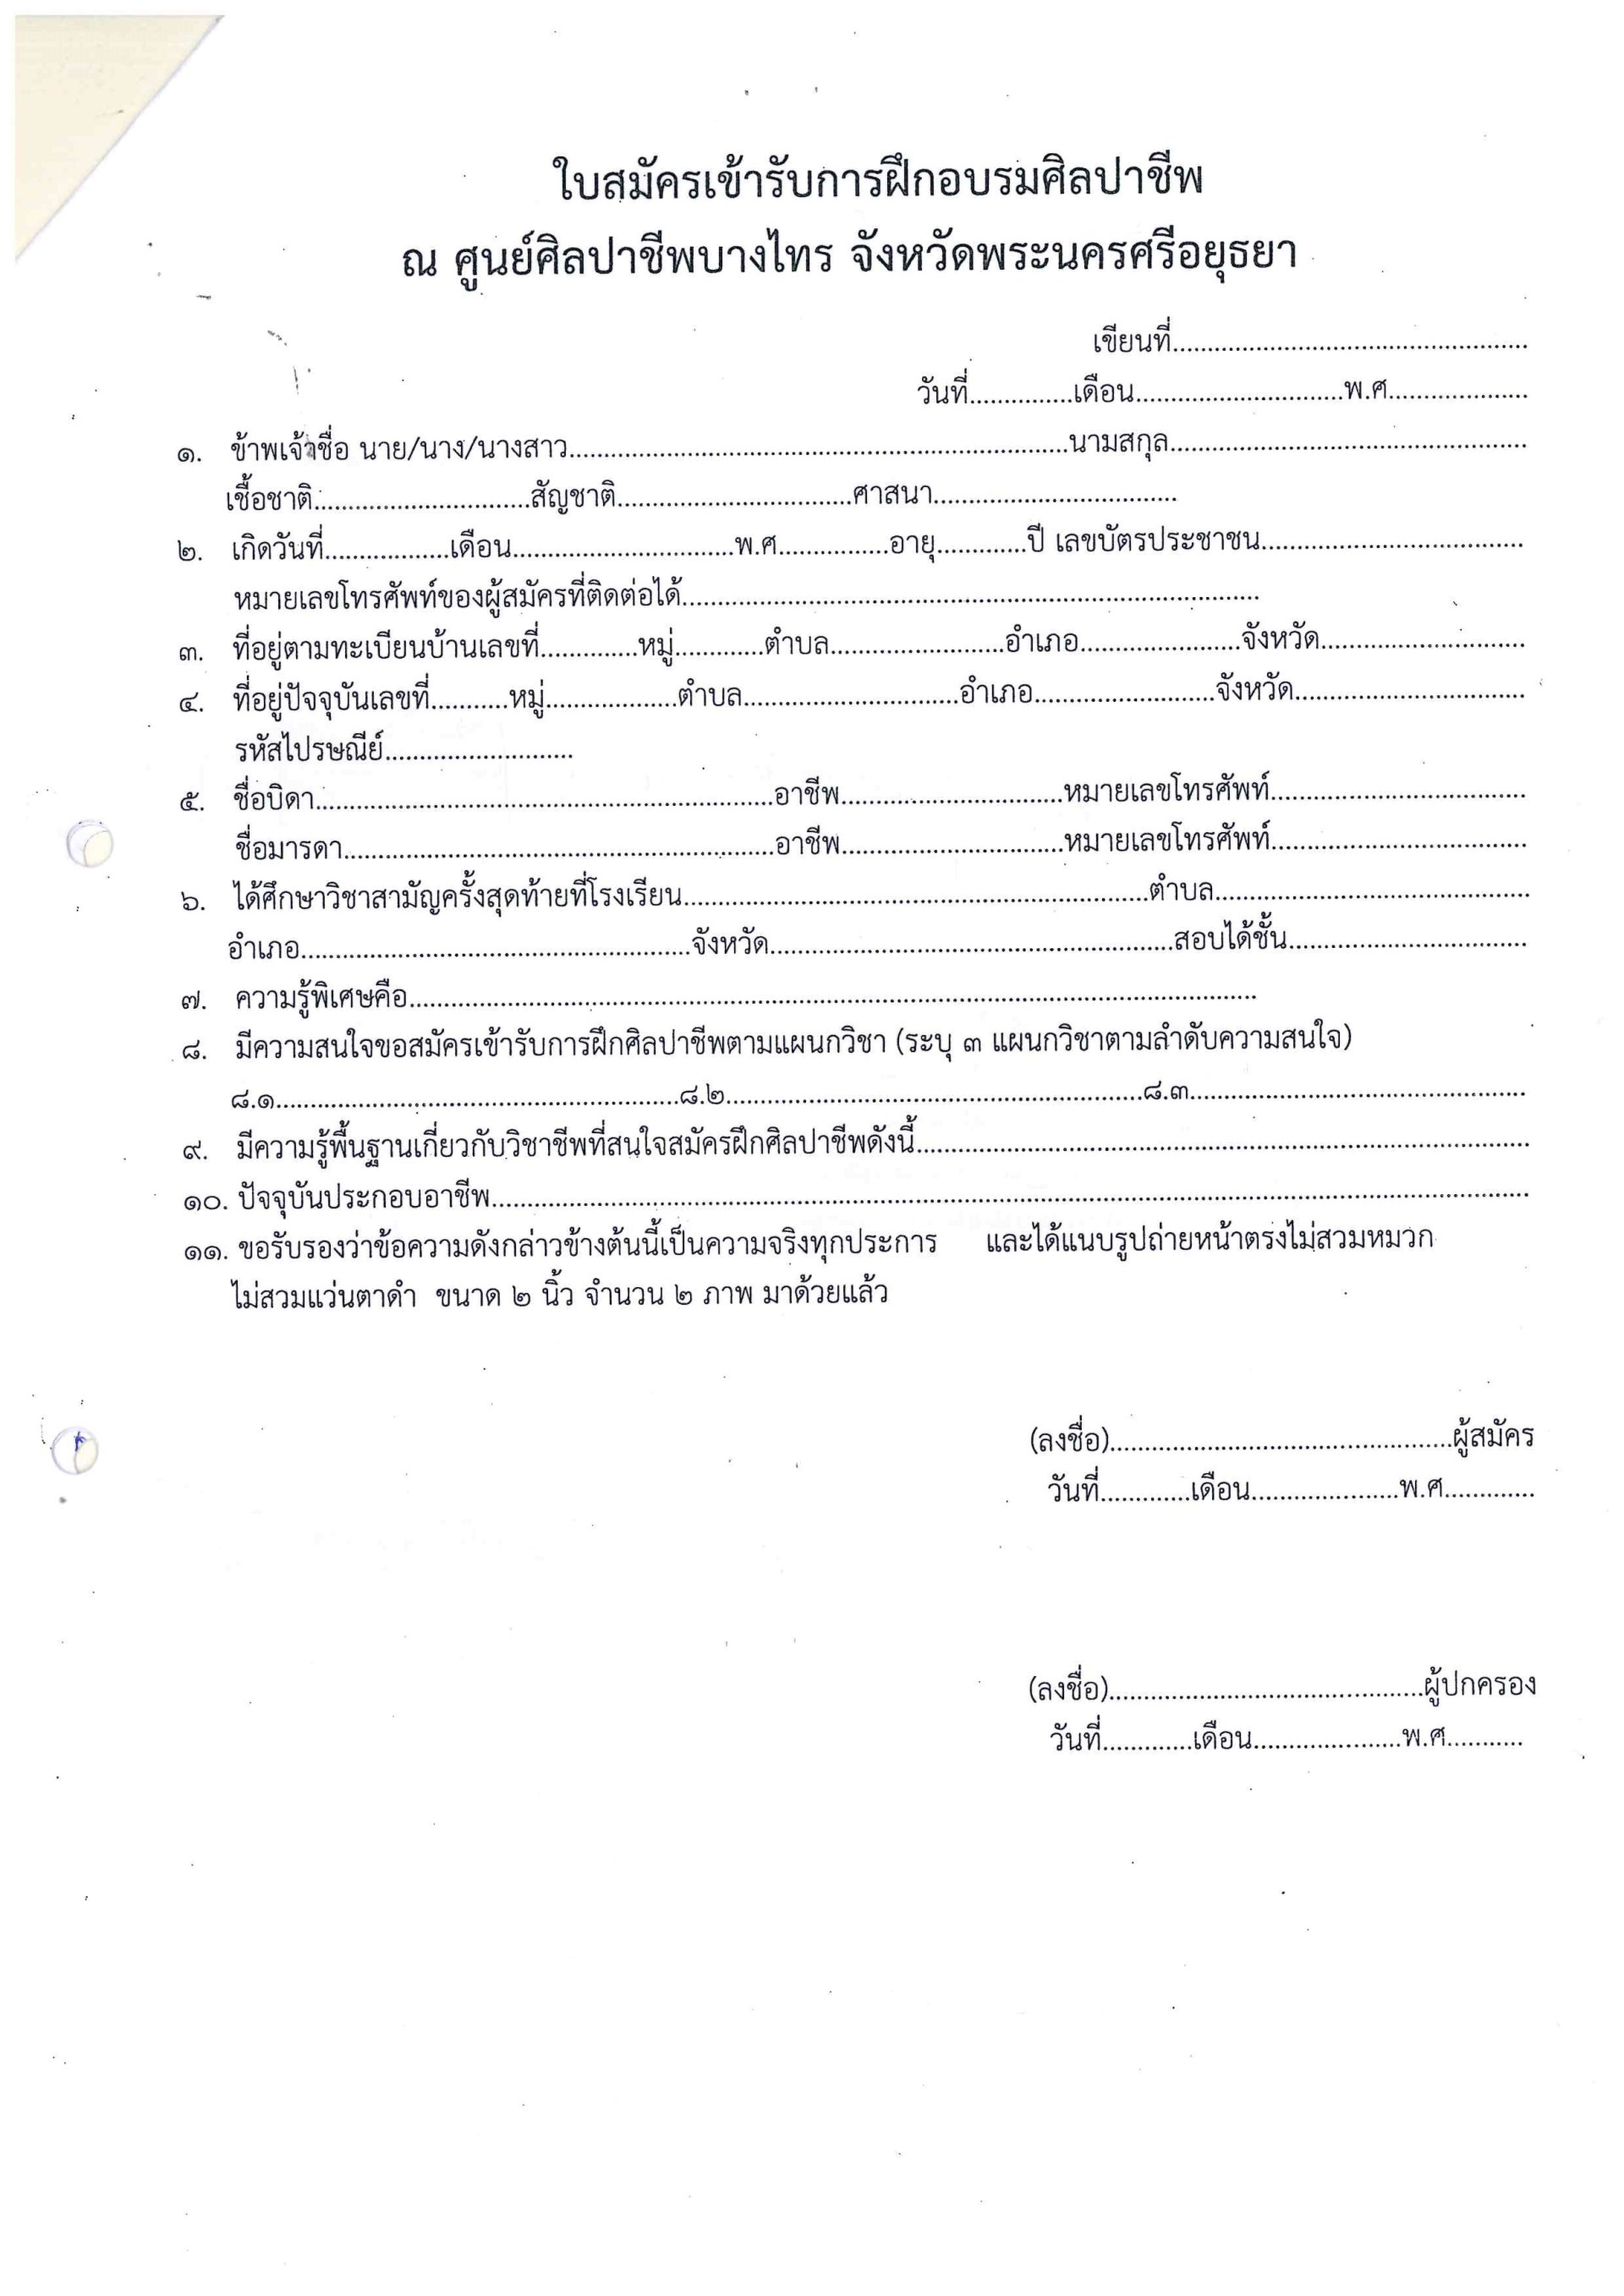 ใบสมัครเข้ารับการฝึกอบรมศิลปาชีพ
ณ ศูนย์ศิลปาชีพบางไทร จังหวัดพระนครศรีอยุธยา
เขียนที่....................................................
วันที่...............เดือน..............................พ.ศ.....................
๑. ข้าพเจ้าชื่อ นาย/นาง/นางสาว.........................................................................นามสกุล....................................................
เชื้อชาติ................................สัญชาติ..................................ศาสนา....................................
๒. เกิดวันที่..................เดือน................................พ.ศ................อายุ.............ปี เลขบัตรประชาชน.......................................
หมายเลขโทรศัพท์ของผู้สมัครที่ติดต่อได้.....................................................................................
๓. ที่อยู่ตามทะเบียนบ้านเลขที่..............หมู่.............ตำบล.........................อำเภอ.......................จังหวัด..............................
๔. ที่อยู่ปัจจุบันเลขที่...........หมู่...................ตำบล...............................อำเภอ..........................จังหวัด..................................
รหัสไปรษณีย์...........................
๕. ชื่อบิดา...................................................................อาชีพ................................หมายเลขโทรศัพท์.....................................
ชื่อมารดา...............................................................อาชีพ................................หมายเลขโทรศัพท์.....................................
๖. ได้ศึกษาวิชาสามัญครั้งสุดท้ายที่โรงเรียน....................................................................ตำบล..............................................
อำเภอ.........................................................จังหวัด...........................................................สอบได้ชั้น...................................
๗. ความรู้พิเศษคือ............................................................................................................................
๘. มีความสนใจขอสมัครเข้ารับการฝึกศิลปาชีพตามแผนกวิชา (ระบุ ๓ แผนกวิชาตามลำดับความสนใจ)
๘.๑...........................................................๘.๒.............................................................๘.๓.................................................
๙. มีความรู้พื้นฐานเกี่ยวกับวิชาชีพที่สนใจสมัครฝึกศิลปาชีพดังนี้..........................................................................................
๑๐. ปัจจุบันประกอบอาชีพ........................................................................................................................................................
๑๑. ขอรับรองว่าข้อความดังกล่าวข้างต้นนี้เป็นความจริงทุกประการ และได้แนบรูปถ่ายหน้าตรงไม่สวมหมวก
ไม่สวมแว่นตาดำ ขนาด ๒ นิ้ว จำนวน ๒ ภาพ มาด้วยแล้ว
(ลงชื่อ)..................................................ผู้สมัคร
วันที่.............เดือน.....................พ.ศ.............
(ลงชื่อ)..............................................ผู้ปกครอง
วันที่.............เดือน.....................พ.ศ...........